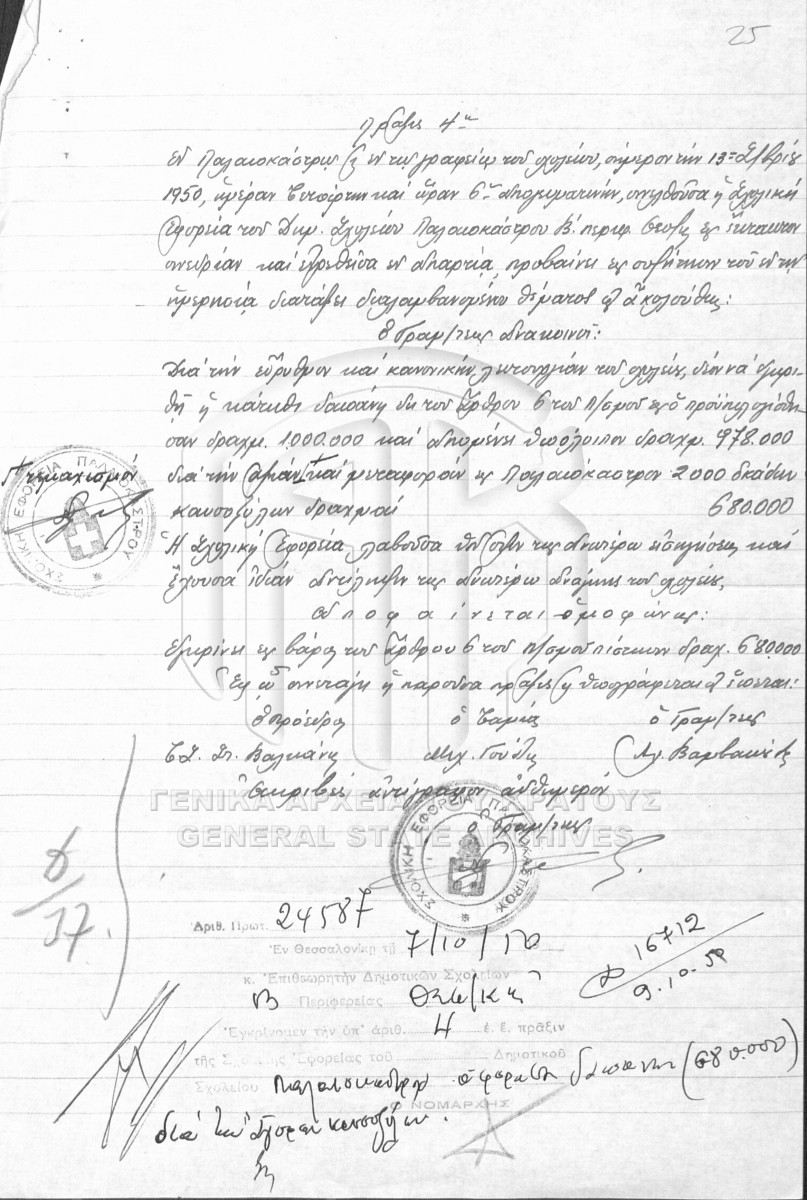 25
Πρᾶξις 4η
Ἐν Παλαιοκάστρῳ & ἐν τῷ γραφείῳ τοῦ σχολείου, σήμερον τὴν 13ην 7/βρίου
1950, ἡμέραν Τετάρτην καὶ ὥραν 6ην ἀπογευματινήν, συνελθοῦσα ἡ Σχολική
Ἐφορεία τοῦ Δημ. Σχολείου Παλαιοκάστρου Β′ περιφ. Θεσ/κης εἰς ἔκτακτον
συνεδρίαν καὶ εὑρεθεῖσα ἐν ἀπαρτίᾳ, προβαίνει εἰς συζήτησιν τοῦ ἐν τῇ
ἡμερησίᾳ διατάξει διαλαμβανομένου θέματος ὡς ἀκολούθως:
Ὁ Γραμ/τεὺς ἀνακοινοῖ:
Διὰ τὴν εὔρυθμον καὶ κανονικὴν λειτουργίαν τοῦ σχολείου, δέον νὰ ἐγκρι-
θῇ ἡ κάτωθι δαπάνη ἐκ τοῦ ἄρθρου 6 τοῦ Π/σμοῦ εἰς ὃ προϋπελογίσθη-
σαν δραχμ. 1.000.000 καὶ ἀπομένει ὑπόλοιπον δραχμ. 978.000
διὰ τὴν ἀγορὰν καὶ μεταφορὰν εἰς Παλαιόκαστρον 2000 ὀκάδων
τεμαχισμόν
καυσοξύλων δραχμαί 680.000
Ἡ Σχολικὴ Ἐφορεία λαβοῦσα ὑπ' ὄψιν τὰς ἀνωτέρω εἰσηγήσεις καὶ
ἔχουσα ἰδίαν ἀντίληψιν τῆς ἀνωτέρω ἀνάγκης τοῦ σχολείου,
ἀποφαίνεται ὁμοφώνως:
Ἐγκρίνει εἰς βάρος τοῦ ἄρθρου 6 τοῦ Π/σμοῦ πίστωσιν δραχ. 680.000
Ἐφ' ᾧ συνετάγη ἡ παροῦσα πρᾶξις & ὑπογράφεται ὡς ἕπεται:
Ὁ Πρόεδρος ὁ Ταμίας ὁ Γραμ/τεὺς
Μιχ. Βαμβακ
Ἀκριβὲς ἀντίγραφον αὐθημερόν
ὁ Γραμ/τεὺς
ΣΧΟΛΙΚΗ ΕΦΟΡΕΙΑ ΠΑΛΑΙΟΚΑΣΤΡΟΥ
ΣΧΟΛΙΚΗ ΕΦΟΡΕΙΑ ΠΑΛΑΙΟΚΑΣΤΡΟΥ
ΓΕΝΙΚΑ ΑΡΧΕΙΑ ΤΟΥ ΚΡΑΤΟΥΣ
GENERAL STATE ARCHIVES
Ἀριθ. Πρωτ. 24587
Ἐν Θεσσαλονίκῃ τῇ 7/10/50
16712
9.10.50
κ. Ἐπιθεωρητὴν Δημοτικῶν Σχολείων
Β Περιφερείας Θεσ/κης
Ἐγκρίνομεν τὴν ὑπ' ἀριθ. 4 ἐ. ἔ. πρᾶξιν
τῆς Σχολικῆς Ἐφορείας τοῦ Δημοτικοῦ
Σχολείου Παλαιοκάστρου δαπάνην (680.000)
Ο ΝΟΜΑΡΧΗΣ
διὰ τὴν ἀγορὰν καυσοξύλων.